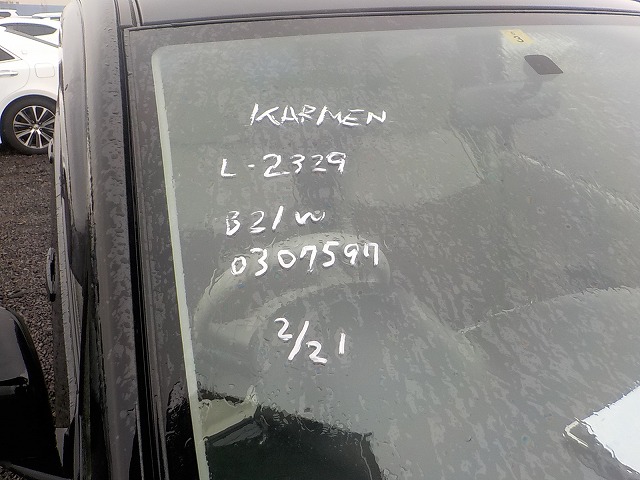 KARMEN
L-2329
B21W
0307597
2/21